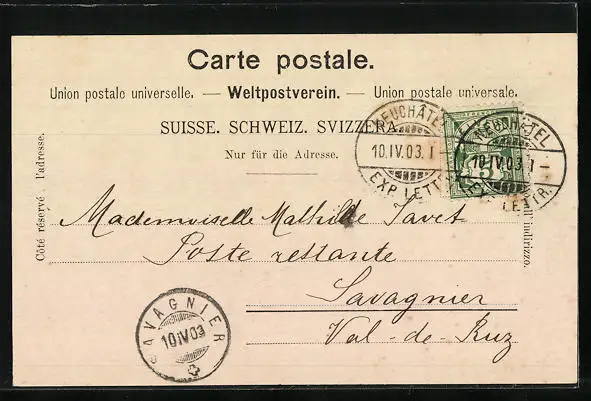 Carte postale.
Union postale universelle. — Weltpostverein. — Union postale universale.
SUISSE. SCHWEIZ. SVIZZERA.
Nur für die Adresse.
Côté réservé à l'adresse.
NEUCHÂTEL
10.IV.03. I
EXP. LETTR.
NEUCHÂTEL
10.IV.03. I
EXP. LETTR.
5
Mademoiselle Mathilde Javet
Poste restante
Savagnier
Val-de-Ruz
SAVAGNIER
10 IV 03
all' indirizzo.